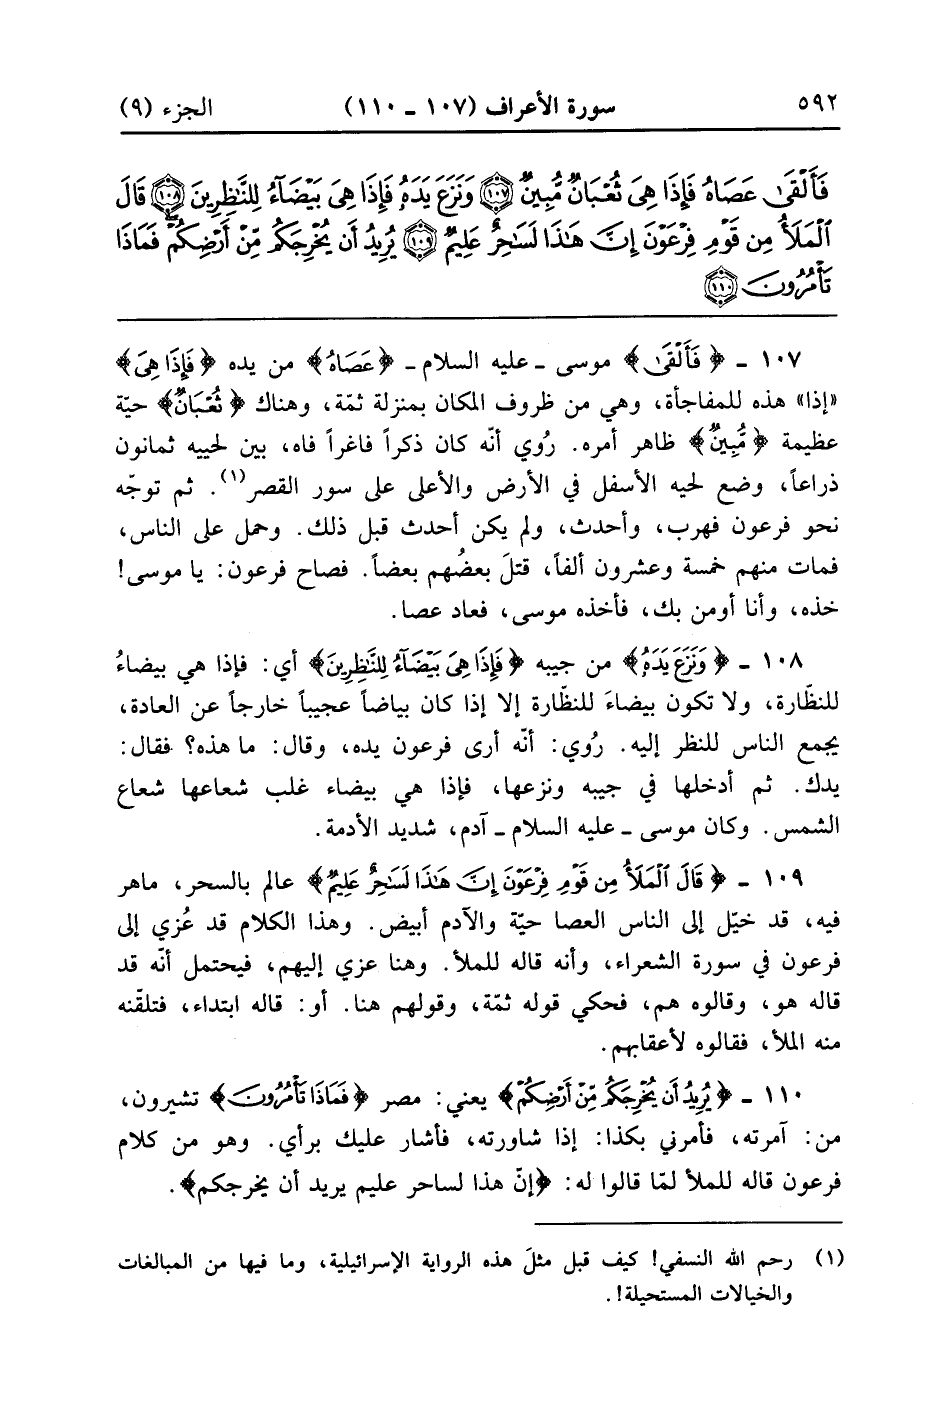 ٥٩٢ سورة الأعراف (١٠٧ - ١١٠) الجزء (٩)
فَأَلْقَىٰ عَصَاهُ فَإِذَا هِىَ ثُعْبَانٌ مُّبِينٌ ﴿١٠٧﴾ وَنَزَعَ يَدَهُۥ فَإِذَا هِىَ بَيْضَآءُ لِلنَّـٰظِرِينَ ﴿١٠٨﴾ قَالَ
ٱلْمَلَأُ مِن قَوْمِ فِرْعَوْنَ إِنَّ هَـٰذَا لَسَـٰحِرٌ عَلِيمٌ ﴿١٠٩﴾ يُرِيدُ أَن يُخْرِجَكُم مِّنْ أَرْضِكُمْ ۖ فَمَاذَا
تَأْمُرُونَ ﴿١١٠﴾
١٠٧ - ﴿فَأَلْقَىٰ﴾ موسى - عليه السلام - ﴿عَصَاهُ﴾ من يده ﴿فَإِذَا هِىَ﴾
«إذا» هذه للمفاجأة، وهي من ظروف المكان بمنزلة ثمّة، وهناك ﴿ثُعْبَانٌ﴾ حيّة
عظيمة ﴿مُّبِينٌ﴾ ظاهر أمره. رُوي أنّه كان ذكراً فاغراً فاه، بين لحييه ثمانون
ذراعاً، وضع لحيه الأسفل في الأرض والأعلى على سور القصر(١). ثم توجّه
نحو فرعون فهرب، وأحدث، ولم يكن أحدث قبل ذلك. وحمل على الناس،
فمات منهم خمسة وعشرون ألفاً، قتلَ بعضُهم بعضاً. فصاح فرعون: يا موسى!
خذه، وأنا أومن بك، فأخذه موسى، فعاد عصا.
١٠٨ - ﴿وَنَزَعَ يَدَهُۥ﴾ من جيبه ﴿فَإِذَا هِىَ بَيْضَآءُ لِلنَّـٰظِرِينَ﴾ أي: فإذا هي بيضاءُ
للنظّارة، ولا تكون بيضاءَ للنظّارة إلا إذا كان بياضاً عجيباً خارجاً عن العادة،
يجمع الناس للنظر إليه. رُوي: أنّه أرى فرعون يده، وقال: ما هذه؟ فقال:
يدك. ثم أدخلها في جيبه ونزعها، فإذا هي بيضاء غلب شعاعها شعاع
الشمس. وكان موسى - عليه السلام - آدم، شديد الأدمة.
١٠٩ - ﴿قَالَ ٱلْمَلَأُ مِن قَوْمِ فِرْعَوْنَ إِنَّ هَـٰذَا لَسَـٰحِرٌ عَلِيمٌ﴾ عالم بالسحر، ماهر
فيه، قد خيّل إلى الناس العصا حيّة والآدم أبيض. وهذا الكلام قد عُزي إلى
فرعون في سورة الشعراء، وأنه قاله للملأ. وهنا عزي إليهم، فيحتمل أنّه قد
قاله هو، وقالوه هم، فحكي قوله ثمّة، وقولهم هنا. أو: قاله ابتداء، فتلقّنه
منه الملأ، فقالوه لأعقابهم.
١١٠ - ﴿يُرِيدُ أَن يُخْرِجَكُم مِّنْ أَرْضِكُمْ﴾ يعني: مصر ﴿فَمَاذَا تَأْمُرُونَ﴾ تشيرون،
من: آمرته، فأمرني بكذا: إذا شاورته، فأشار عليك برأي. وهو من كلام
فرعون قاله للملأ لمّا قالوا له: ﴿إنّ هذا لساحر عليم يريد أن يخرجكم﴾.
(١) رحم الله النسفي! كيف قبل مثلَ هذه الرواية الإسرائيلية، وما فيها من المبالغات
والخيالات المستحيلة!.